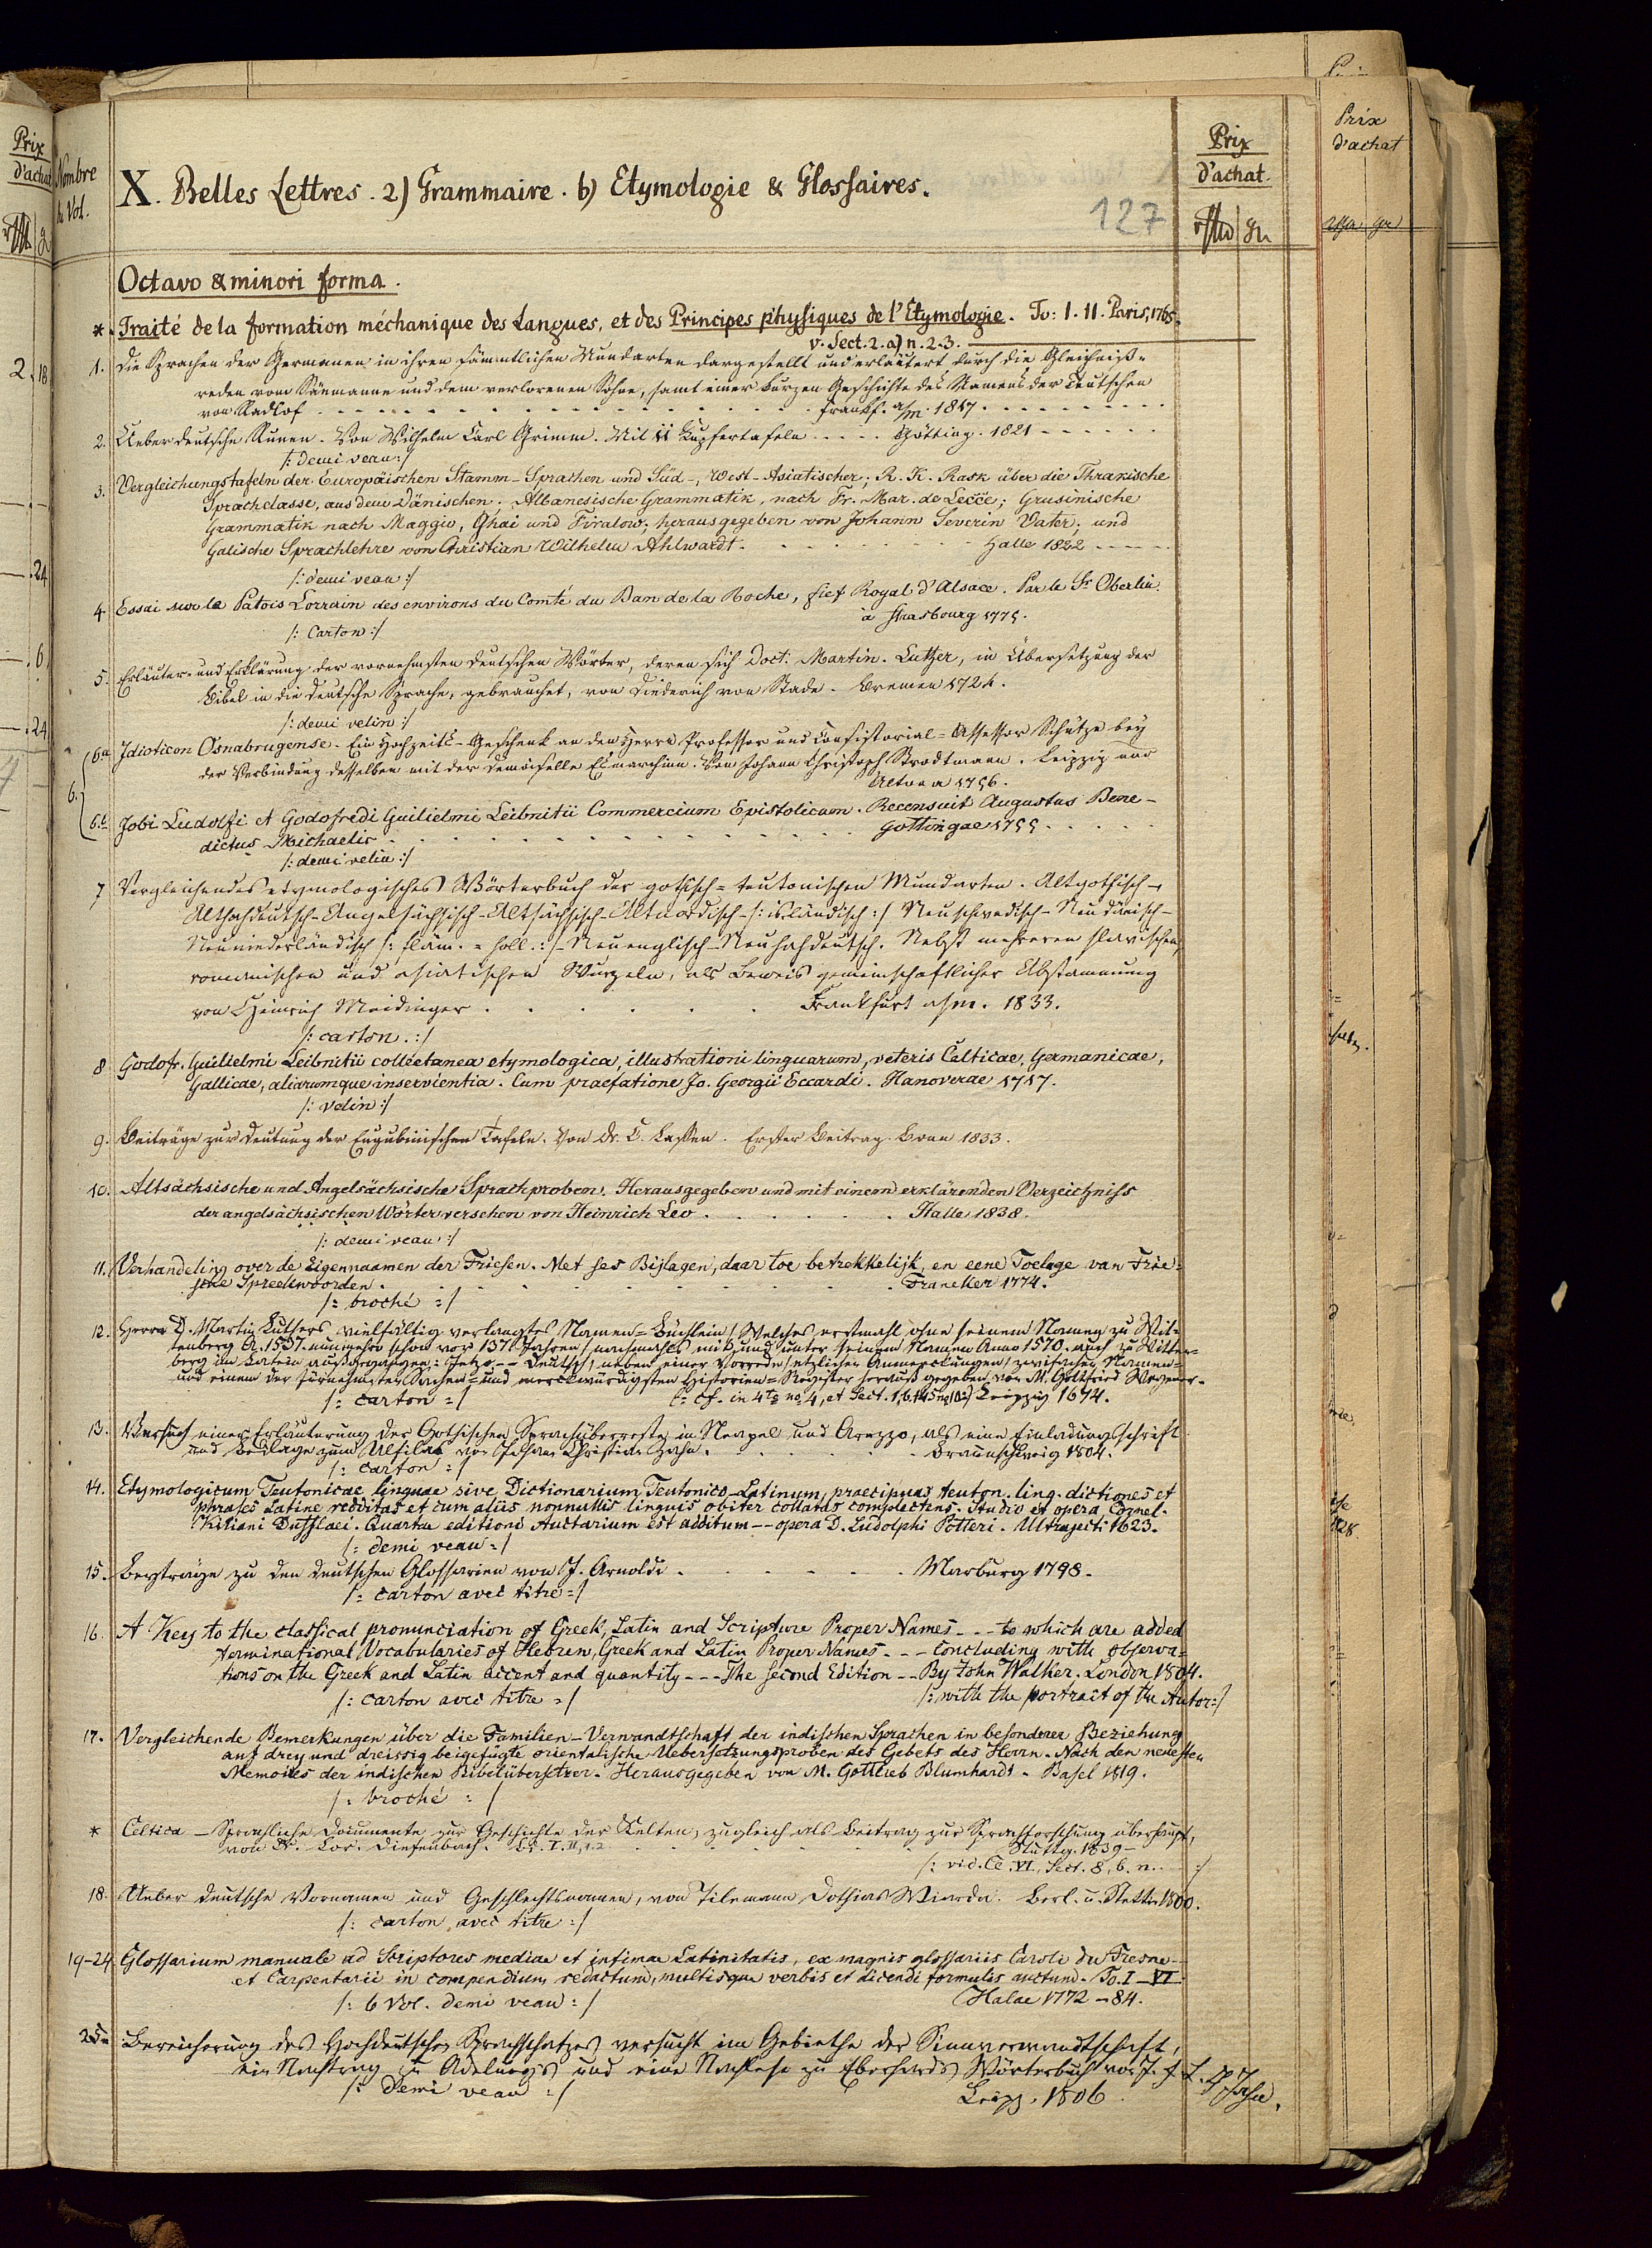 Prix
d'achat
Nombre
de Vol.
X. Belles Lettres. 2) Grammaire. b) Etymologie & Glossaires.
127
Prix
d'achat.
Prix
d'achat
Octavo & minori forma.
* Traité de la formation méchanique des Langues, et des Principes physiques de l'Etymologie. To: I. II. Paris, 1765.
v. Sect. 2. a) n. 2. 3.
1. Die Sprachen der Germanen in ihren sämmtlichen Mundarten dargestellt und erläutert durch die Gleichniß=
reden vom Säemanne und dem verlorenen Sohne, samt einer kurzen Geschichte des Namens der Teutschen
von Radlof . . . Frankf. a/m. 1817.
2. Ueber deutsche Runen. Von Wilhelm Carl Grimm. Mit 11 Kupfertafeln . . . Götting. 1821
/: demi veau :/
3. Vergleichungstafeln der Europäischen Stamm-Sprachen und Süd-, West-Asiatischer; R. K. Rask über die Thrakische
Sprachclasse, aus dem Dänischen; Albanesische Grammatik, nach Fr. Mar. de Lecce; Grusinische
Grammatik nach Maggio, Ghai und Firalow; herausgegeben von Johann Severin Vater; und
Galische Sprachlehre von Christian Wilhelm Ahlwardt. . . . Halle 1822
/: demi veau :/
4. Essai sur le Patois Lorrain des environs du Comté du Ban de la Roche, fief Royal d'Alsace. Par le Sr. Oberlin.
à Strasbourg 1775.
/: Carton :/
5. Erläuter- und Erklärung der vornehmsten deutschen Wörter, deren sich Doct. Martin. Luther, in Übersetzung der
Bibel in die deutsche Sprache, gebrauchet, von Diederich von Stade. Bremen 1724.
/: demi velin :/
6. 6a Idioticon Osnabrugense. Ein Hochzeits-Geschenk an den Herrn Professor und Consistorial=Assessor Schütze bey
der Verbindung desselben mit der Demoiselle Esmarchinn. Von Johann Christoph Strodtmann. Leipzig und
Altona 1756.
6.b. Jobi Ludolfi et Godofredi Guilielmi Leibnitii Commercium Epistolicum. Recensuit Augustus Bene-
dictus Michaelis . . . Gottingae 1755.
/: demi velin :/
7 Vergleichendes etymologisches Wörterbuch der gothisch=teutonischen Mundarten. Altgothisch-,
Althochdeutsch-Angelsächsisch-Altsächsisch-Altnordisch-/: isländisch :/ Neuschwedisch-Neudänisch-
Neuniederländisch /: fläm.=holl. :/-Neuenglisch-Neuhochdeutsch. Nebst mehreren slavischen,
romanischen und asiatischen Wurzeln, als Beweis gemeinschaftlicher Abstammung
von Heinrich Meidinger . . . Frankfurt a/m. 1833.
/: carton. :/
8 Godofr. Guilielmi Leibnitii collectanea etymologica, illustrationi linguarum, veteris Celticae, Germanicae,
Gallicae, aliarumque inservientia. Cum praefatione Jo. Georgii Eccardi. Hanoverae 1717.
/: velin :/
9. Beiträge zur Deutung der Eugubinischen Tafeln. Von Dr. C. Lassen. Erster Beitrag. Bonn 1833.
10. Altsächsische und Angelsächsische Sprachproben. Herausgegeben und mit einem erklärenden Verzeichniss
der angelsächsischen Wörter versehen von Heinrich Leo . . . Halle 1838.
/: demi veau :/
11. Verhandeling over de Eigennaamen der Friesen. Met ses Bijlagen, daar toe betrekkelijk, en eene Toelage van Frie=
sche Spreekwoorden . . . Franeker 1774.
/: broché :/
12. Herrn D. Martin Luthers vielfältig verlangtes Namen=Büchlein/ Welches erstmahl ohne seinem Namen zu Wit=
tenberg A. 1537. nunmehro schon vor 137. Jahren/ nachmahls mit und unter seinem Namen Anno 1570. auch zu Witten=
berg im Latein außgegangen: Jetzo -- Deutsch/ neben einer Vorrede/ etzlichen Anmerckungen/ zwifachen Namen=
und einem der fürnehmsten Sachen= und merckwürdigsten Historien=Register herauß gegeben von M. Gottfried Wegener.
/: carton :/ Leipzig 1674.
13. Versuch einer Erläuterung der Gothischen Sprachüberreste in Neapel und Arezzo, als eine Einladungsschrift
und Beylage zum Ulfilas von Johann Christian Zahn. . . . Braunschweig 1804.
/: carton :/
14. Etymologicum Teutonicae linguae sive Dictionarium Teutonico-Latinum, praecipuas teuton. ling. dictiones et
phrases Latine redditas et cum aliis nonnullis linguis obiter collatas complectens. Studio et opera Cornel.
Kiliani Dufflaei. Quartae editioni Auctarium est additum -- opera D. Ludolphi Potteri. Ultrajecti 1623.
/: demi veau :/
15. Beyträge zu den deutschen Glossarien von J. Arnoldi . . . Marburg 1798.
/: carton avec titre :/
16. A Key to the classical pronunciation of Greek, Latin and Scripture Proper Names --- to which are added
terminational Vocabularies of Hebrew, Greek and Latin Proper Names --- concluding with observa=
tions on the Greek and Latin accent and quantity --- The second Edition -- By John Walker. London 1804.
/: carton avec titre :/ /: with the portrait of the Autor :/
17. Vergleichende Bemerkungen über die Familien-Verwandtschaft der indischen Sprachen in besonderer Beziehung
auf drey und dreissig beigefügte orientalische Uebersetzungsproben des Gebets des Herrn. Nach den neuesten
Memoires der indischen Bibelübersetzer. Herausgegeben von M. Gottlieb Blumhardt. Basel 1819.
/: broché :/
* Celtica - Sprachliche Documente zur Geschichte der Kelten, zugleich als Beitrag zur Sprachforschung überhaupt,
von Dr. Lor. Diefenbach. Bd. I. II, 1.2 Stuttg. 1839-
/: vid. Cl. VI, Sect. 8, b. n. :/
18. Ueber deutsche Vornamen und Geschlechtsnamen, von Tilemann Dothias Wiarda. Berl. u. Stettin 1800.
/: carton avec titre :/
19-24 Glossarium manuale ad Scriptores mediae et infimae Latinitatis, ex magnis glossariis Caroli du Fresne--
et Carpentarii in compendium redactum, multisque verbis et dicendi formulis auctum. To. I-VI.
/: 6 Vol. demi veau :/ Halae 1772-84.
25. Bereicherung des Hochdeutschen Sprachschatzes versucht im Gebiethe der Sinnverwandtschaft,
ein Nachtrag zu Adelung's und eine Nachlese zu Eberhards Wörterbuch von J. F. L. Jahn.
/: demi veau :/ Leipz. 1806.